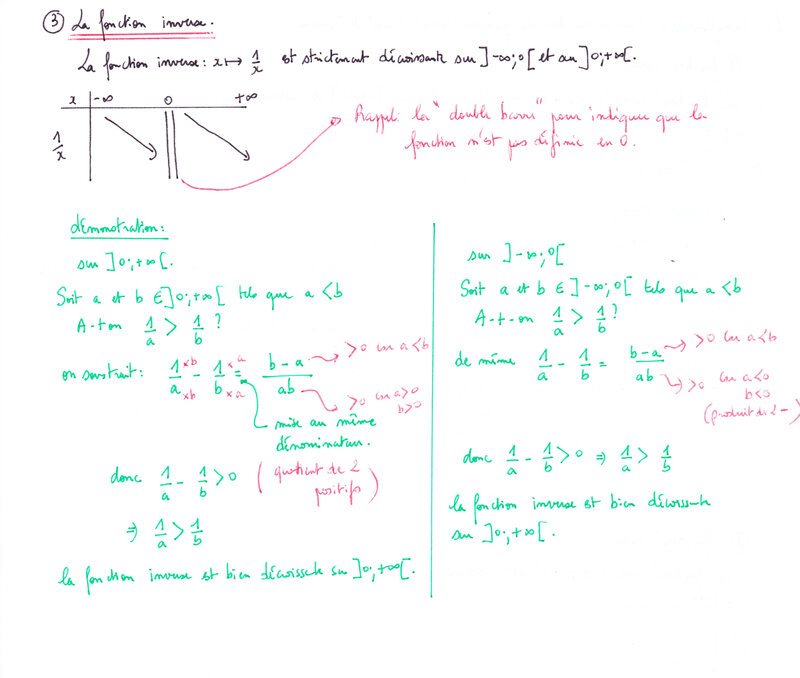 ③ La fonction inverse.
La fonction inverse: x ↦ 1/x est strictement décroissante sur ]-∞;0[ et sur ]0;+∞[.
x -∞ 0 +∞
1/x
Rappel: la "double barre" pour indiquer que la
fonction n'est pas définie en 0.
démonstration:
sur ]0;+∞[.
Soit a et b ∈ ]0;+∞[ tels que a < b
A-t-on 1/a > 1/b ?
on soustrait: 1/a ×b/×b - 1/b ×a/×a = (b-a)/ab
>0 car a<b
>0 car a>0
b>0
mise au même
dénominateur.
donc 1/a - 1/b > 0 (quotient de 2
positifs)
⇒ 1/a > 1/b
la fonction inverse est bien décroissante sur ]0;+∞[.
sur ]-∞;0[
Soit a et b ∈ ]-∞;0[ tels que a < b
A-t-on 1/a > 1/b ?
de même 1/a - 1/b = (b-a)/ab
>0 car a<b
>0 car a<0
b<0
(produit de 2 -)
donc 1/a - 1/b > 0 ⇒ 1/a > 1/b
la fonction inverse est bien décroissante
sur ]0;+∞[.